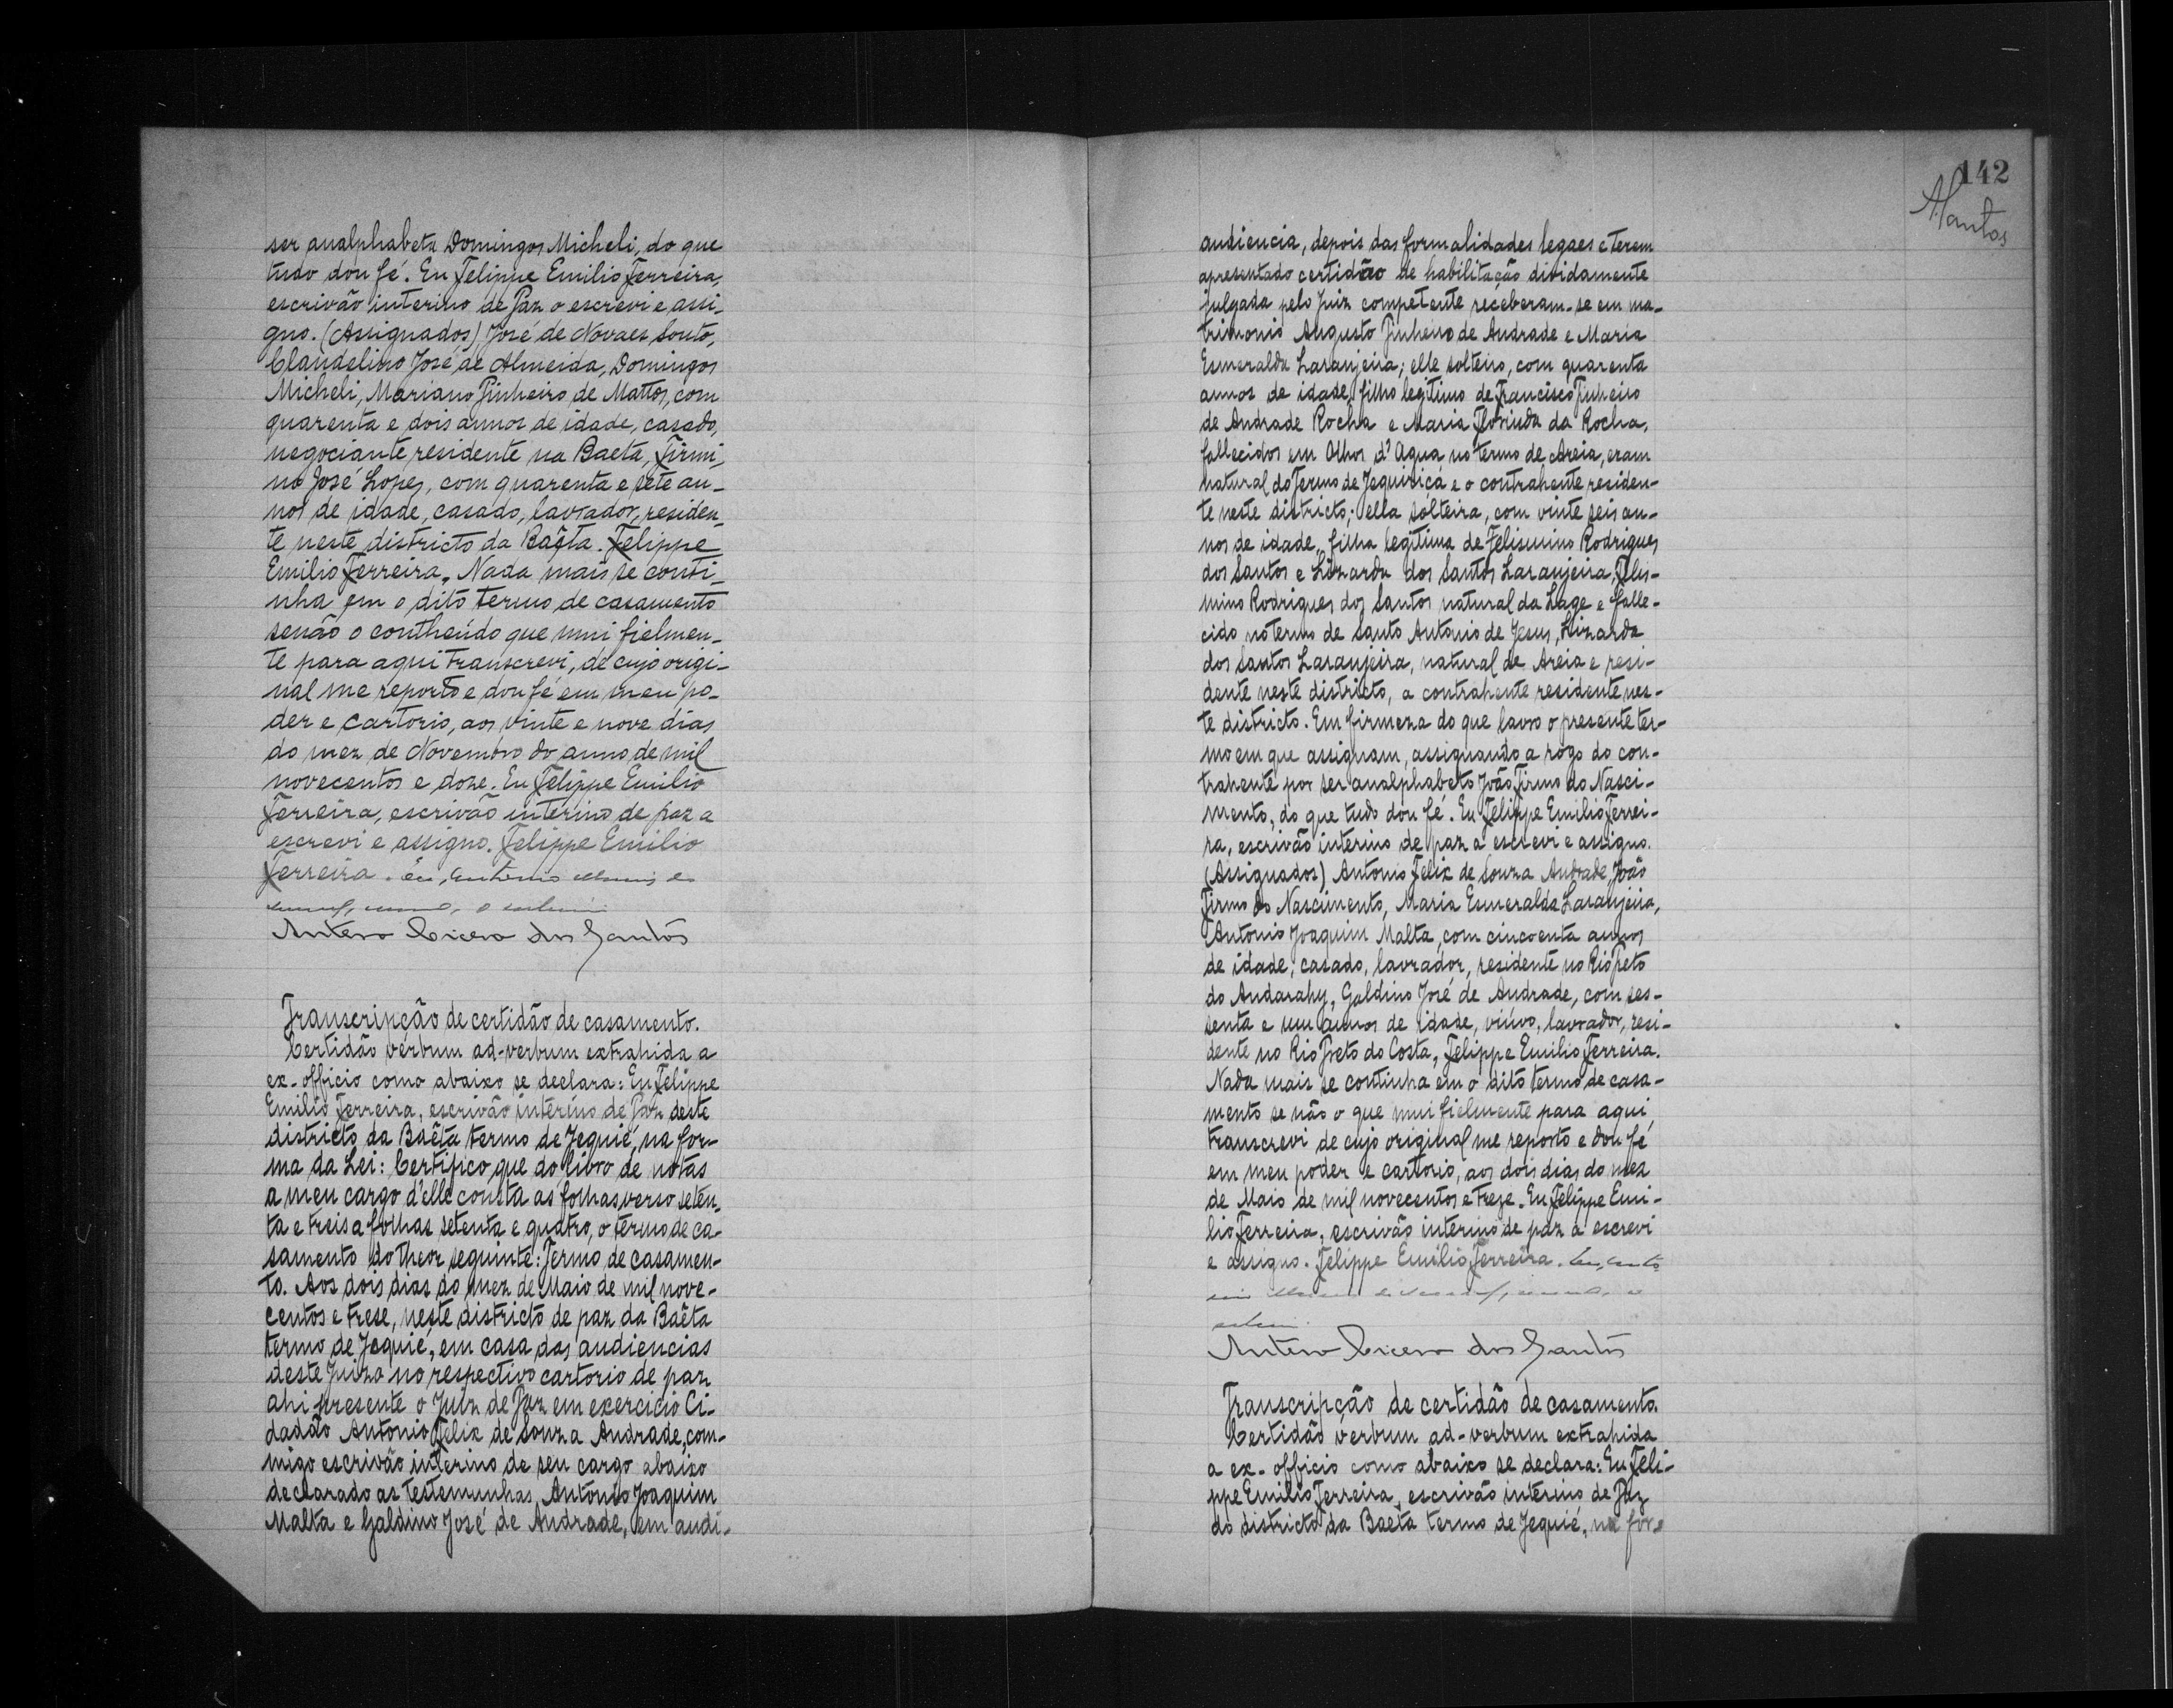 ser analphabeta Domingos Micheli, do que
tudo dou fé. Eu Felippe Emilio Ferreira,
escrivão interino de Paz o escrevi e assi-
gno. (Assignados) José de Novaes Souto,
Claudelino José de Almeida, Domingos
Micheli, Mariano Pinheiro de Mattos, com
quarenta e dois annos de idade, casado,
negociante residente na Baeta, Firmi-
no José Lopes, com quarenta e sete an-
nos de idade, casado, lavrador, residen-
te neste districto da Baêta. Felippe
Emilio Ferreira. Nada mais se conti-
nha em o dito termo de casamento
senão o contheúdo que mui fielmen-
te para aqui transcrevi, de cujo origi-
nal me reporto e dou fé em meu po-
der e cartorio, aos vinte e nove dias
do mez de Novembro do anno de mil
novecentos e doze. Eu Felippe Emilio
Ferreira, escrivão interino de paz a
escrevi e assigno. Felippe Emilio
Ferreira. Eu, Antonio
Antero Cicero dos Santos
Transcripção de certidão de casamento.
Certidão verbum ad-verbum extrahida a
ex-officio como abaixo se declara: Eu Felippe
Emilio Ferreira, escrivão interino de Paz deste
districto da Baêta termo de Jequié, na for-
ma da Lei: Certifico que do livro de notas
a meu cargo d'elle consta as folhas verso seten-
ta e treis a folhas setenta e quatro, o termo de ca-
samento do theor seguinte: Termo de casamen-
to. Aos dois dias do mez de Maio de mil nove-
centos e trese, neste districto de paz da Baêta
termo de Jequié, em casa das audiencias
deste Juizo no respectivo cartorio de paz
ahi presente o Juiz de Paz em exercicio Ci-
dadão Antonio Felix de Souza Andrade, com-
migo escrivão interino de seu cargo abaixo
declarado as testemunhas Antonio Joaquim
Malta e Galdino José de Andrade, em audi-
142
ASantos
audiencia, depois das formalidades legaes e terem
apresentado certidão de habilitação dividamente
julgada pelo Juiz competente receberam-se em ma-
trimonio Augusto Pinheiro de Andrade e Maria
Esmeralda Laranjeira; elle solteiro, com quarenta
annos de idade, filho legitimo de Francisco Pinheiro
de Andrade Rocha e Maria Florinda da Rocha,
fallecidos em Olhos d'Agua no termo de Areia, eram
natural do Termo de Jequiriçá e o contrahente residen-
te neste districto; ella solteira, com vinte seis an-
nos de idade, filha legitima de Felismino Rodrigues
dos Santos e Lizarda dos Santos Laranjeira, Felis-
mino Rodrigues dos Santos natural da Lage e falle-
cido no termo de Santo Antonio de Jesus, Lizarda
dos Santos Laranjeira, natural de Areia e resi-
dente neste districto, a contrahente residente nes-
te districto. Em firmeza do que lavro o presente ter-
mo em que assignam, assignando a rogo do con-
trahente por ser analphabeto João Firmo do Nasci-
mento, do que tudo dou fé. Eu Felippe Emilio Ferrei-
ra, escrivão interino de paz a escrevi e assigno.
(Assignados) Antonio Felix de Souza Andrade, João
Firmo do Nascimento, Maria Esmeralda Laranjeira,
Antonio Joaquim Malta, com cincoenta annos
de idade, casado, lavrador, residente no Rio Preto
do Andarahy, Galdino José de Andrade, com ses-
senta e um annos de idade, viúvo, lavrador, resi-
dente no Rio Preto do Costa, Felippe Emilio Ferreira.
Nada mais se continha em o dito termo de casa-
mento se não o que mui fielmente para aqui
transcrevi de cujo original me reporto e dou fé
em meu poder e cartorio, aos dois dias do mez
de Maio de mil novecentos e treze. Eu Felippe Emi-
lio Ferreira, escrivão interino de paz a escrevi
e assigno. Felippe Emilio Ferreira. Eu, Anto
Antero Cicero dos Santos
Transcripção de certidão de casamento.
Certidão verbum ad-verbum extrahida
a ex-officio como abaixo se declara: Eu Feli-
ppe Emilio Ferreira, escrivão interino de Paz
do districto da Baêta termo de Jequié, na for-